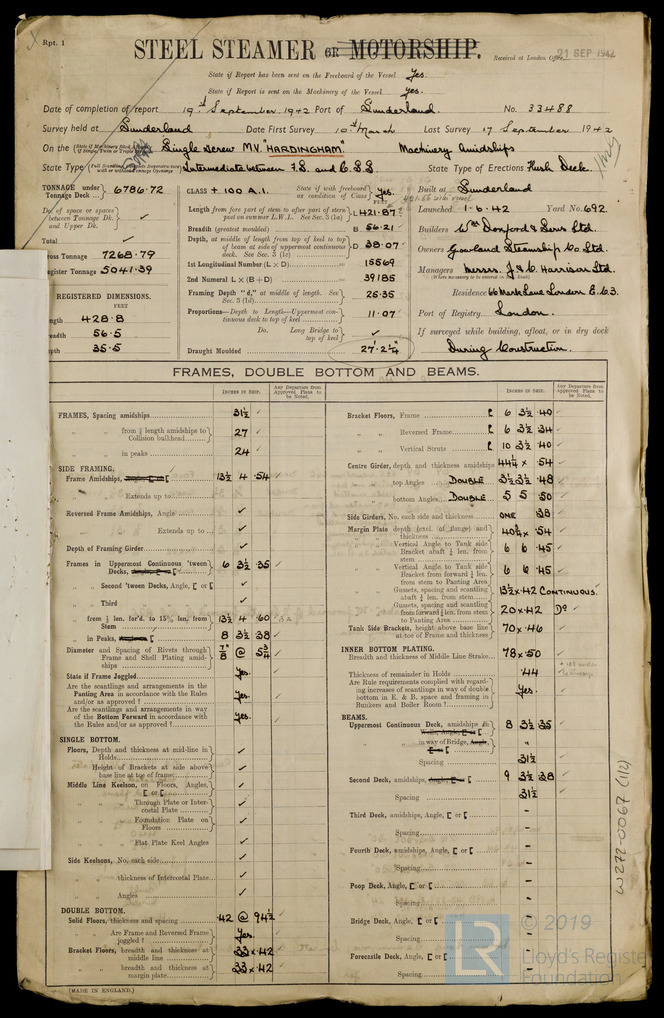 Rpt. 1
STEEL STEAMER OR MOTORSHIP.
Received at London Office 21 SEP 1942
State if Report has been sent on the Freeboard of the Vessel Yes.
State if Report is sent on the Machinery of the Vessel Yes.
Date of completion of report 19th September 1942 Port of Sunderland. No. 33488
Survey held at Sunderland Date First Survey 10th March Last Survey 17 September 1942
On the (State if Machinery fitted Single, Twin or Triple Screw) Single Screw M.V. HARDINGHAM" Machinery Amidships
State Type Intermediate between F.S. and C.S.S State Type of Erections Flush Deck.
TONNAGE under Tonnage Deck 6786.72
Do. of space or spaces between Tonnage Dk. and Upper Dk. ✓
Total ✓
Gross Tonnage 7268.79
Register Tonnage 5041.39
REGISTERED DIMENSIONS.
FEET
428.8
56.5
35.5
CLASS + 100 A.1. State if with freeboard as condition of Class Yes.
FEET
Length from fore part of stem to after part of stern post on summer L.W.L. See Sec. 3 (1a) L 421.87
Breadth (greatest moulded) B 56.21
Depth, at middle of length from top of keel to top of beam at side of uppermost continuous deck. See Sec. 3 (1c) D 38.07
1st Longitudinal Number (L × D) 15569
2nd Numeral L × (B + D) 39185
Framing Depth "d," at middle of length. See Sec. 3 (1d) 26.35
Proportions—Depth to Length—Uppermost continuous deck to top of keel 11.07
Do. Long Bridge to top of keel ✓
Draught Moulded 27' 2¼"
Built at Sunderland
Launched 1.6.42 Yard No. 692
Builders Wm Doxford & Sons Ltd.
Owners Gowland Steamship Co Ltd.
Managers Messrs. J & C. Harrison Ltd.
Residence 66 Mark Lane London E.C.3.
Port of Registry London.
If surveyed while building, afloat, or in dry dock
During Construction.
FRAMES, DOUBLE BOTTOM AND BEAMS.
INCHES IN SHIP. Any Departure from Approved Plans to be Noted.
FRAMES, Spacing amidships 31½ ✓
" " from ⅕ length amidships to Collision bulkhead 27 ✓
" " in peaks 24 ✓
SIDE FRAMING.
Frame Amidships, 13½ 4 .54 ✓
" " Extends up to ✓
Reversed Frame Amidships, Angle ✓
" " Extends up to ✓
Depth of Framing Girder ✓
Frames in Uppermost Continuous 'tween Decks, 6 3½ .35 ✓
" Second 'tween Decks, Angle, [ or [ ✓
" Third " " " ✓
" from ⅕ len. for'd. to 15% len. from Stem 13½ 4 .60
" in Peaks, 8 3½ .38 ✓
Diameter and Spacing of Rivets through Frame and Shell Plating amidships ⅞" @ 5¾ ✓
State if Frame Joggled Yes. ✓
Are the scantlings and arrangements in the Panting Area in accordance with the Rules and/or as approved ? Yes. ✓
Are the scantlings and arrangements in way of the Bottom Forward in accordance with the Rules and/or as approved ? Yes. ✓
SINGLE BOTTOM.
Floors, Depth and thickness at mid-line in Holds ✓
" Height of Brackets at side above base line at toe of frame ✓
Middle Line Keelson, on Floors, Angles, [ or [ ✓
" " Through Plate or Intercostal Plate ✓
" " Foundation Plate on Floors ✓
" " Flat Plate Keel Angles ✓
Side Keelsons, No. each side ✓
" " thickness of Intercostal Plate ✓
" " Angles ✓
DOUBLE BOTTOM.
Solid Floors, thickness and spacing .42 @ 94½ ✓
" Are Frame and Reversed Frame joggled ? Yes. ✓
Bracket Floors, breadth and thickness at middle line 33 × .42 ✓
" " breadth and thickness at margin plate 33 × .42 ✓
INCHES IN SHIP. Any Departure from Approved Plans to be Noted.
Bracket Floors, Frame 6 3½ .40 ✓
" " Reversed Frame 6 3½ .34 ✓
" " Vertical Struts 10 3½ .40 ✓
Centre Girder, depth and thickness amidships 44¼ × .54 ✓
" " top Angles DOUBLE 3½ 3½ .48 ✓
" " bottom Angles DOUBLE 5 5 .50 ✓
Side Girders, No. each side and thickness ONE .38 ✓
Margin Plate depth (excl. of flange) and thickness × .54 ✓
" Vertical Angle to Tank side Bracket abaft ¼ len. from stem 6 6 .45 ✓
" Vertical Angle to Tank side Bracket from forward ¼ len. from stem to Panting Area 6 6 .45 ✓
" Gussets, spacing and scantling abaft ¼ len. from stem 13½ × .42 CONTINUOUS.
" Gussets, spacing and scantling from forward ¼ len. from stem to Panting Area 20 × .42 Do ✓
Tank Side Brackets, height above base line at toe of Frame and thickness 70 × .46 ✓
INNER BOTTOM PLATING.
Breadth and thickness of Middle Line Strake 78 × .50 ✓
Thickness of remainder in Holds .44
Are Rule requirements complied with regarding increases of scantlings in way of double bottom in E. & B. space and framing in Bunkers and Boiler Room ? Yes. ✓
BEAMS.
Uppermost Continuous Deck, amidships 8 3½ .35 ✓
" " in way of Bridge, "
Spacing 31½ ✓
Second Deck, amidships, 9 3½ .38 ✓
Spacing 31½ ✓
Third Deck, amidships, Angle, [ or [ -
Spacing -
Fourth Deck, amidships, Angle, [ or [ -
Spacing -
Poop Deck, Angle, [ or [ -
Spacing -
Bridge Deck, Angle, [ or [ -
Spacing -
Forecastle Deck, Angle, [ or [ -
Spacing -
(MADE IN ENGLAND.)
W272-0067 (1/2)
LR © 2019
Lloyd's Register
Foundation